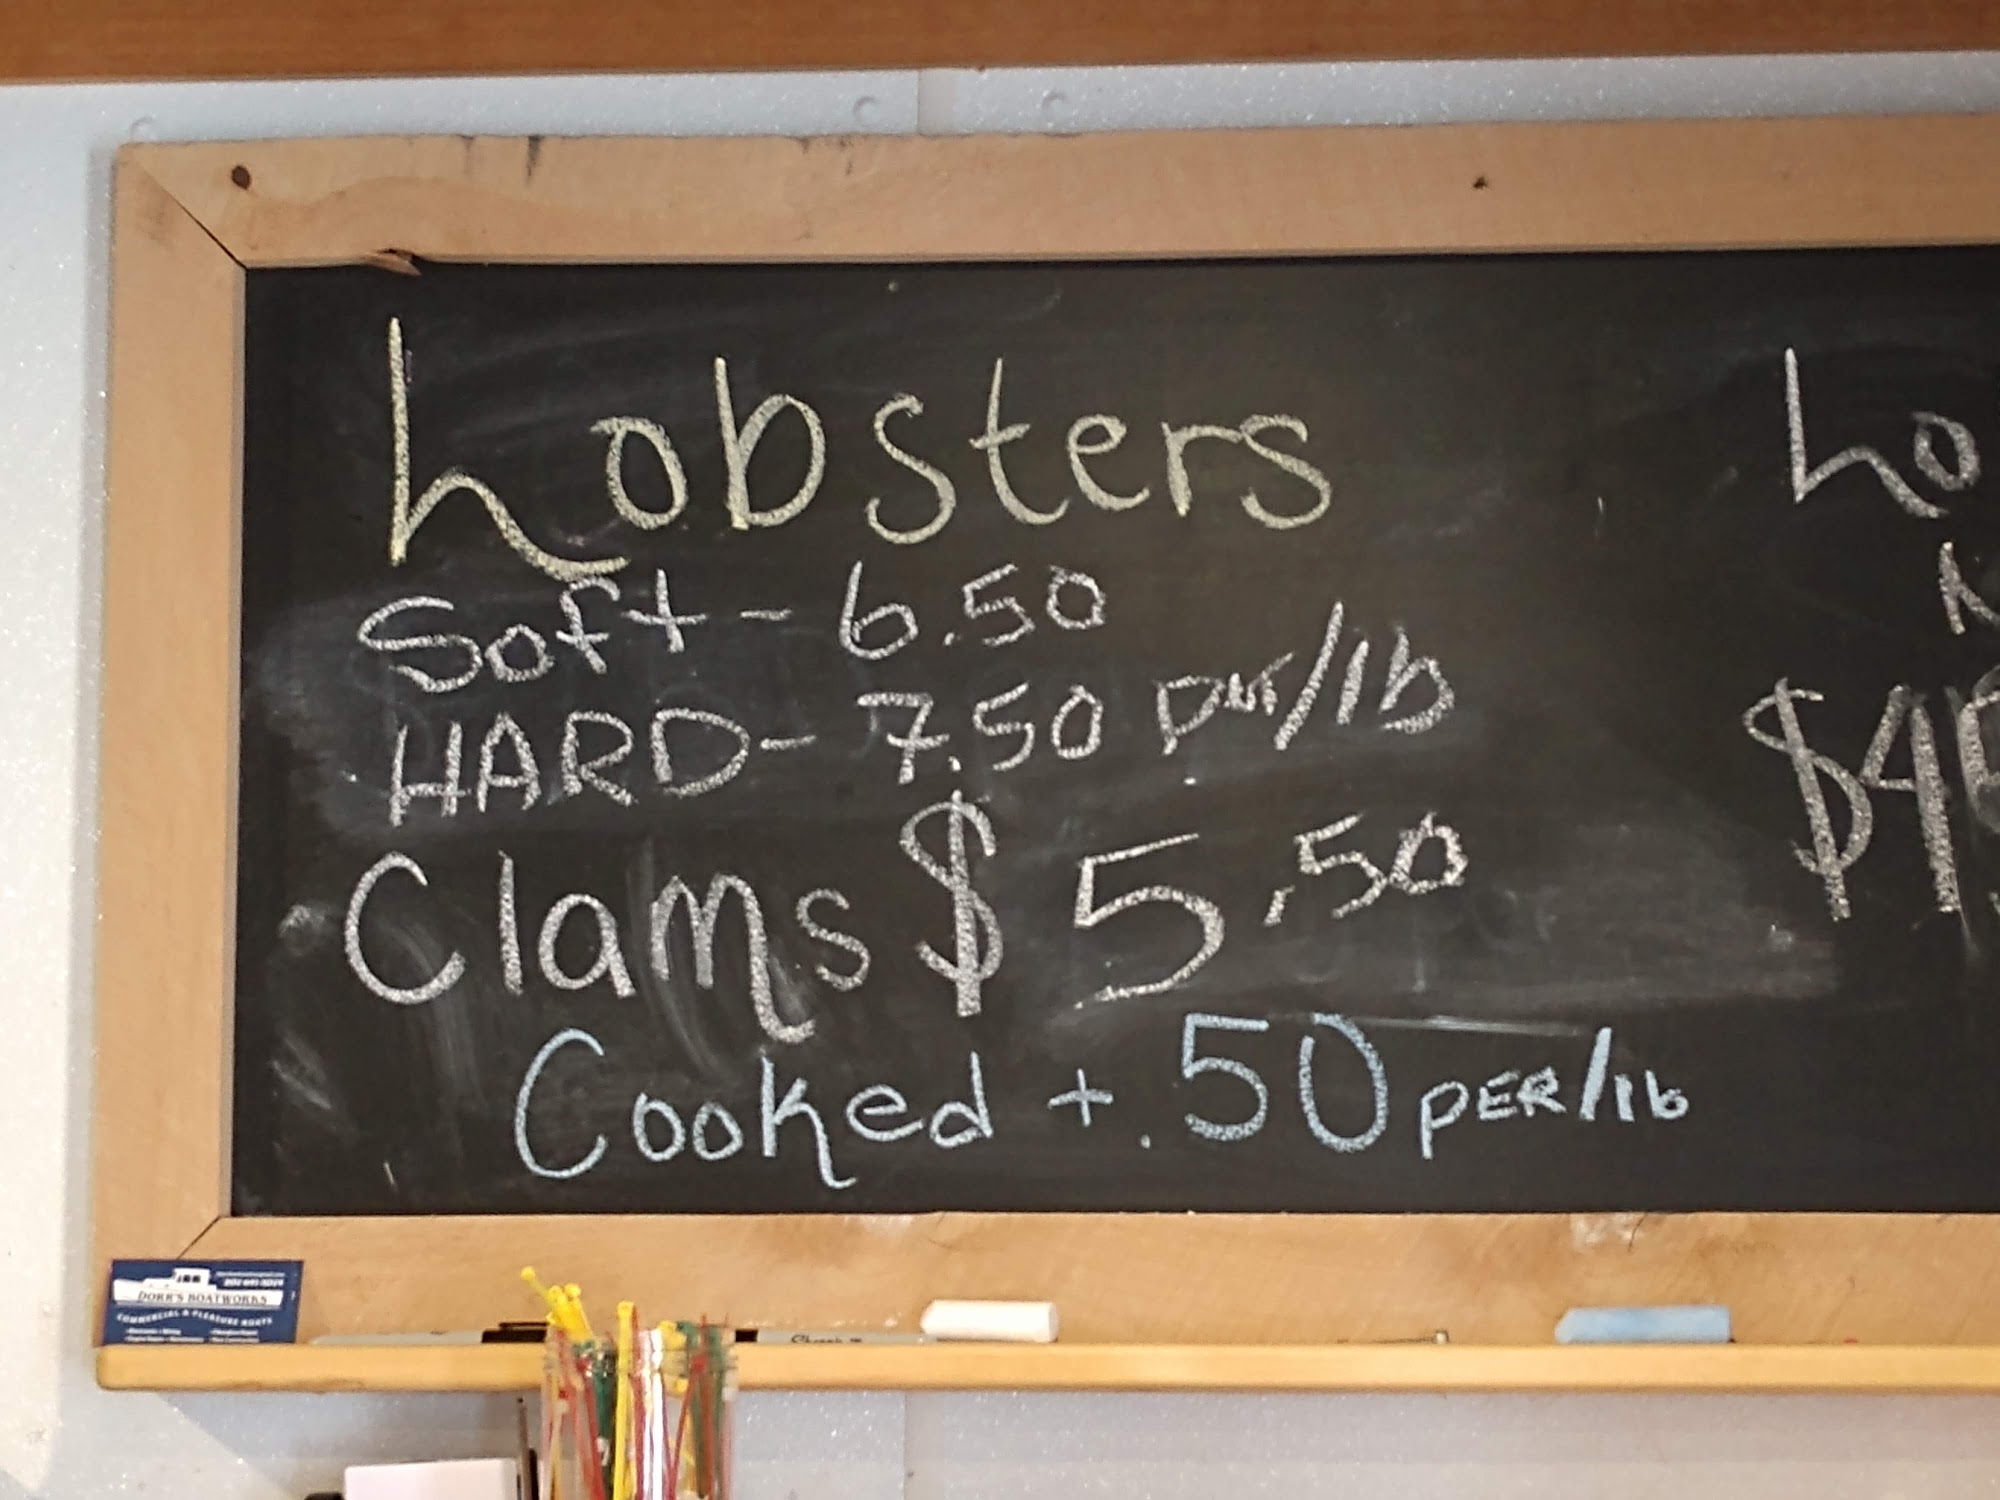 Lobsters
Soft - 6.50
HARD - 7.50 per/lb
Clams $5.50
Cooked + .50 PER/lb
Lo
$4
DORR'S BOATWORKS
COMMERCIAL & PLEASURE BOATS
Sharpie